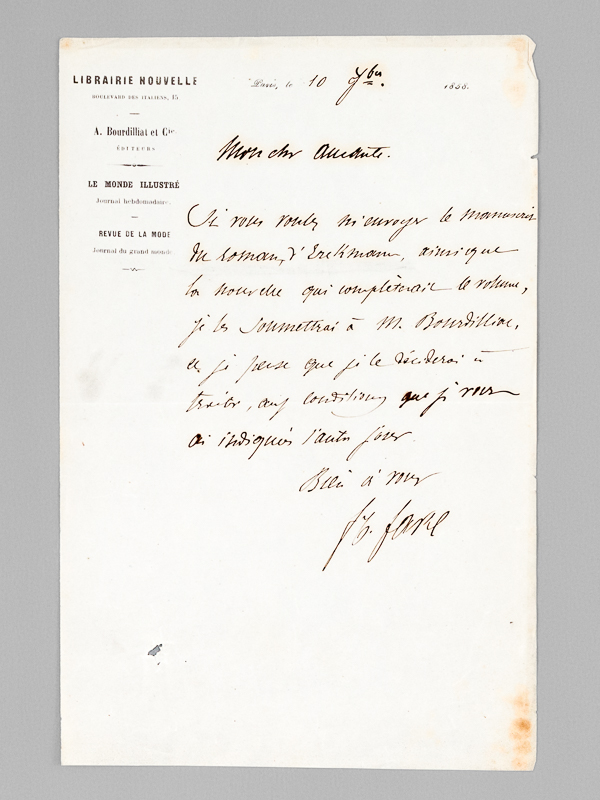 LIBRAIRIE NOUVELLE
BOULEVARD DES ITALIENS, 15
A. Bourdilliat et Cie
ÉDITEURS
LE MONDE ILLUSTRÉ
Journal hebdomadaire.
REVUE DE LA MODE
Journal du grand monde
Paris, le 10 7bre. 1858.
Mon cher
Si vous voulez m'envoyer le manuscrit
du roman d'Erckmann, ainsi que
la nouvelle qui complèterait le volume,
je les soumettrai à M. Bourdilliat,
et je pense que je le déciderai à
traiter, aux conditions que je vous
ai indiqués l'autre jour.
Bien à vous